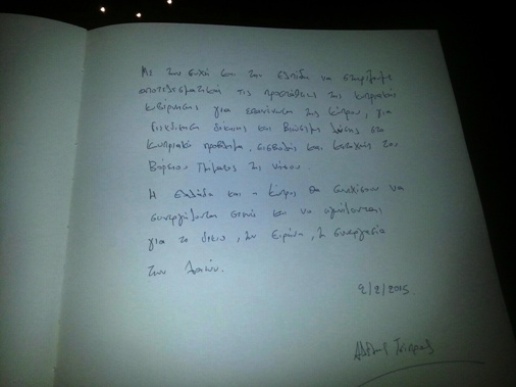 Με την ευχή και την ελπίδα να στηρίξουμε
αποτελεσματικά τις προσπάθειες της κυπριακής
κυβέρνησης για επανένωση της Κύπρου, για
διεκδίκηση δίκαιης και βιώσιμης λύσης στο
Κυπριακό πρόβλημα, εισβολής και κατοχής του
Βόρειου Τμήματος της νήσου.
Η Ελλάδα και η Κύπρος θα συνεχίσουν να
συνεργάζονται στενά και να αγωνίζονται
για το δίκιο, την ειρήνη, τη συνεργασία
των λαών.
2/2/2015
Αλέξης Τσίπρας